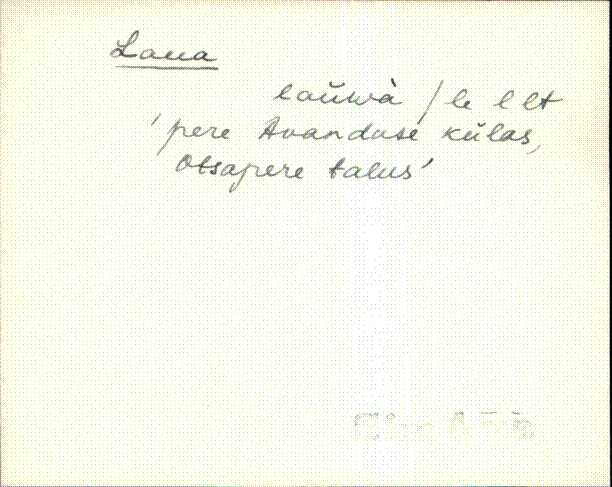 Laua
laŭwà / le l lt
'pere Avanduse külas,
Otsapere talus'